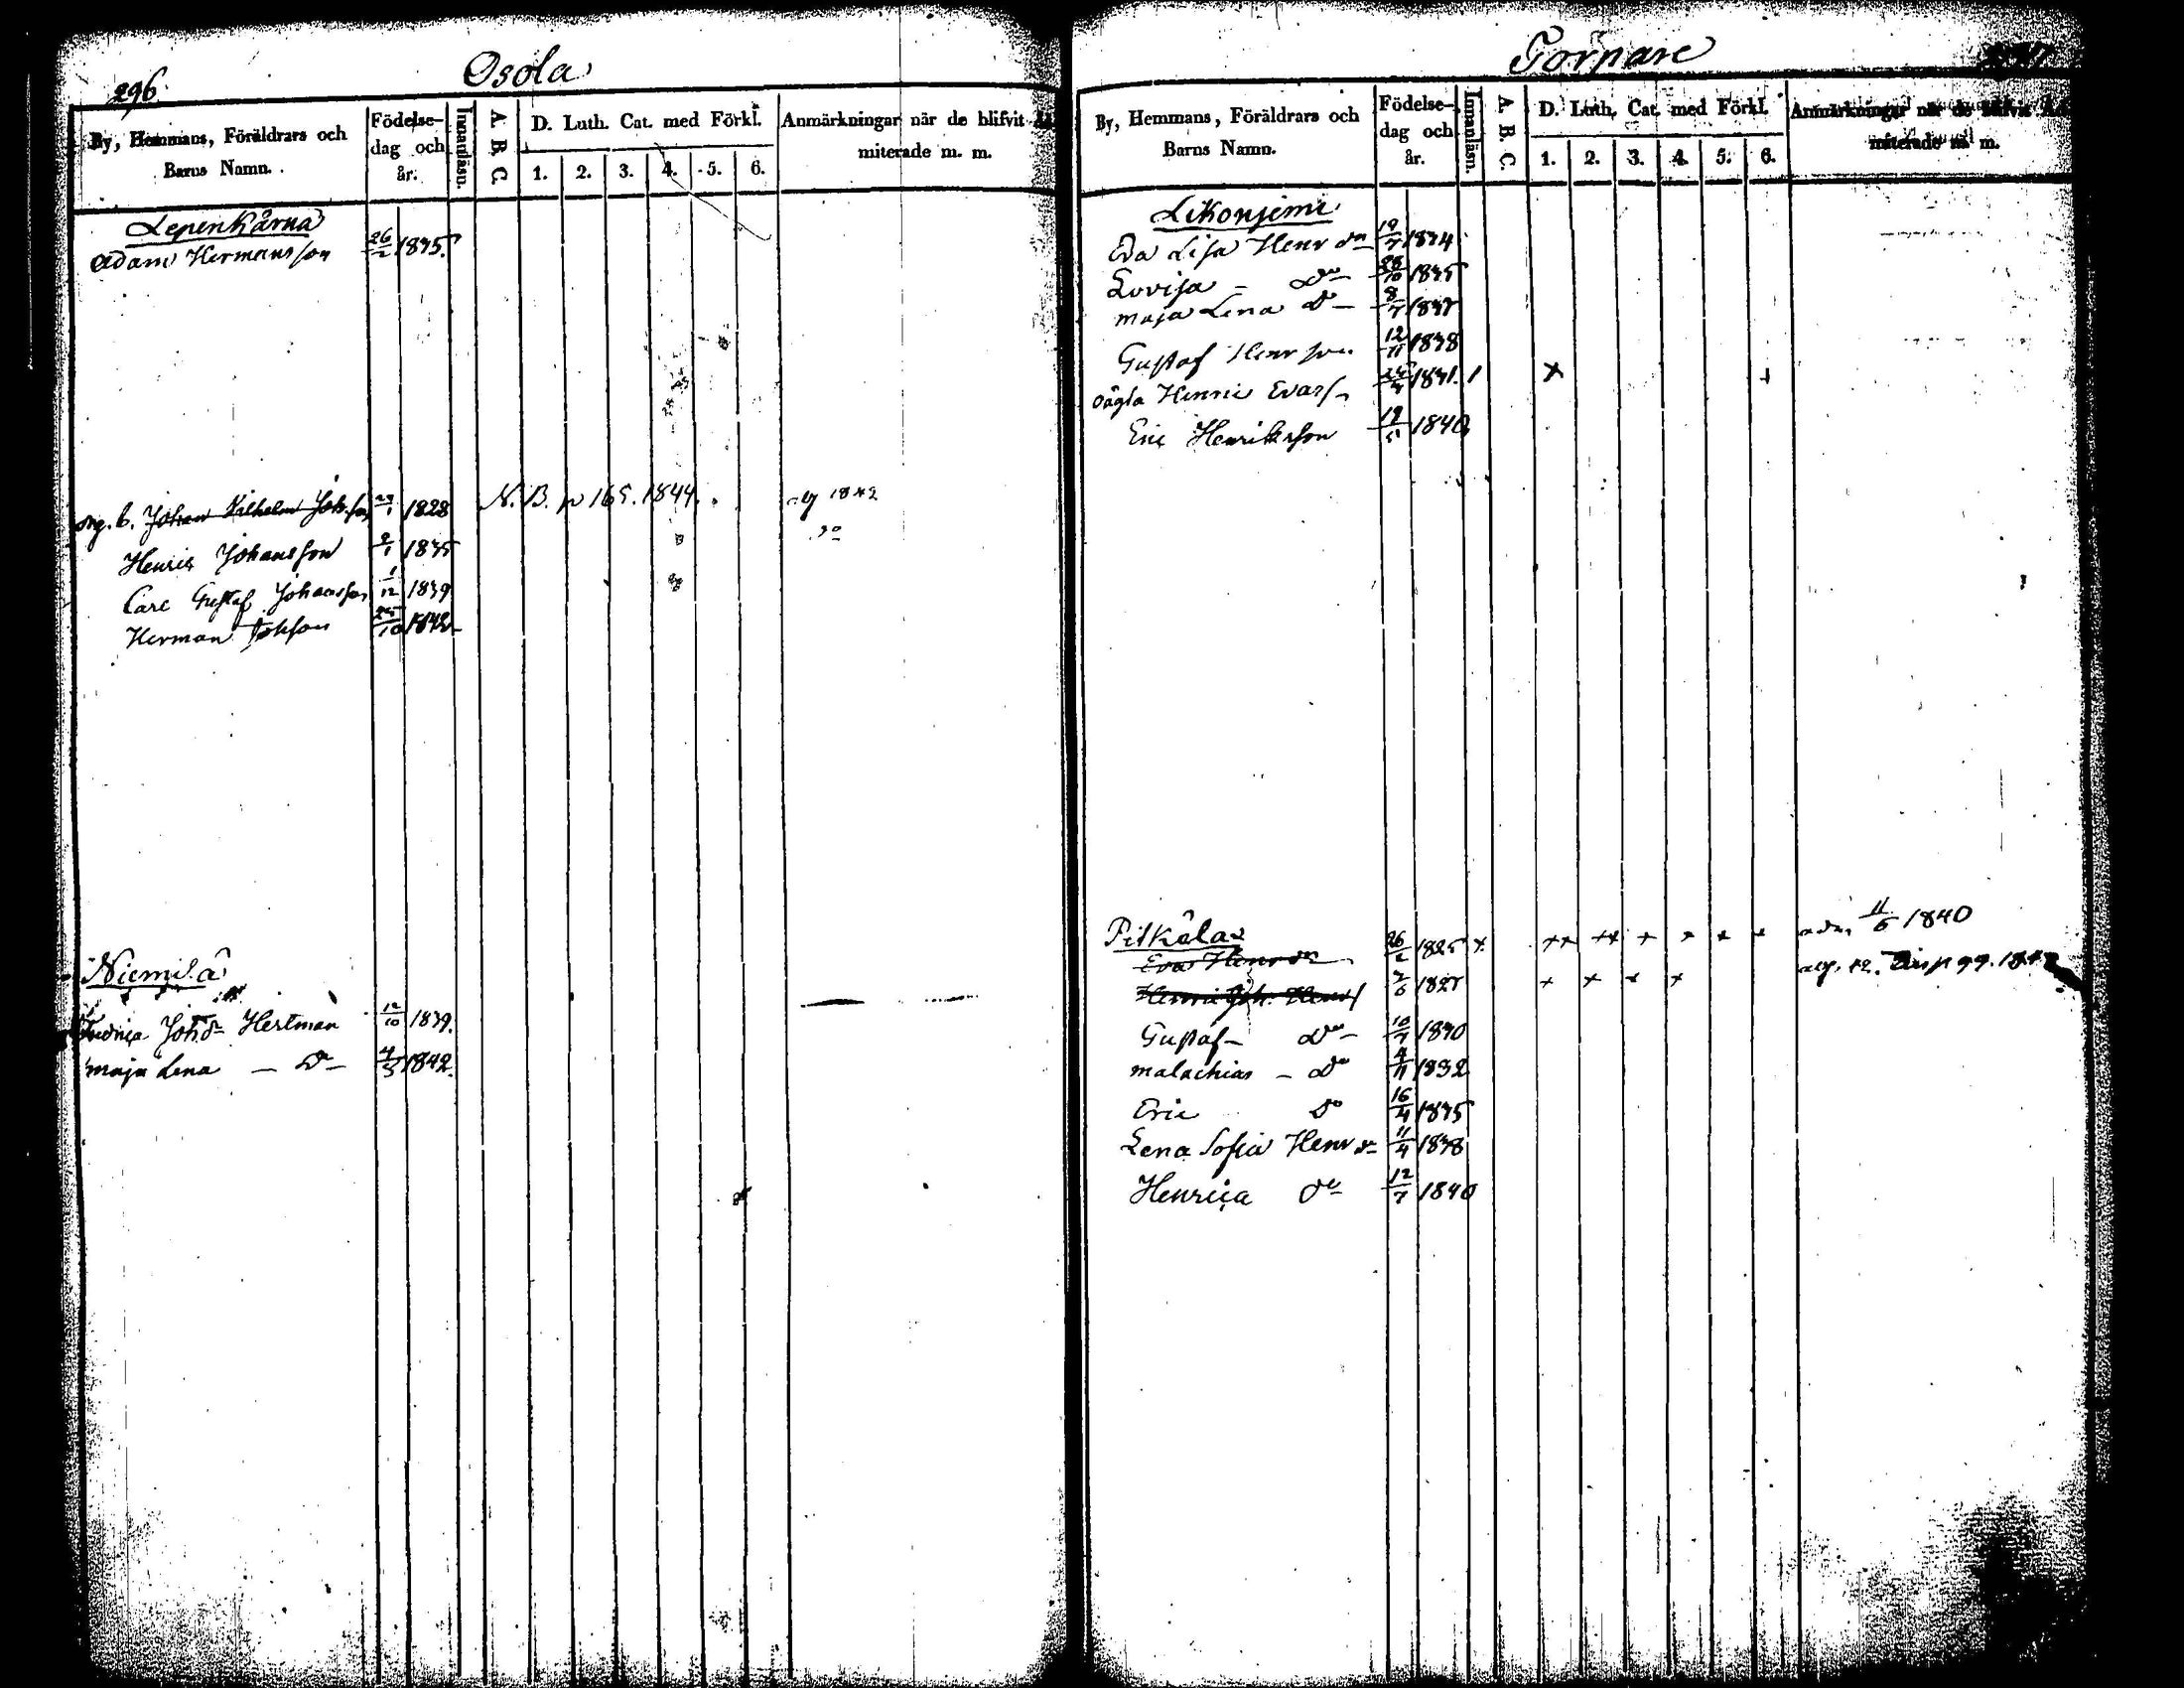 296.
Osola
By, Hemmans, Föräldrars och Barns Namn.
Födelse-dag och år.
Innanläsn.
A. B. C.
D. Luth. Cat. med Förkl.
1. 2. 3. 4. 5. 6.
Anmärkningar när de blifvit Admiterade m. m.
Lepenkärnä
Adam Hermansson 26/2 1835.
Johan Wilhelm Joh.son 1828 N. B. p 165. 1844. 1842
Henric Johansson 1835
Carl Gustaf Johansson 1/12 1839
Herman Johsson 25/10 1842
Niemilä
Fredrica Joh.dr Hertman 12/10 1839.
Maja Lena — Do — 4/5 1842.
Torpare
By, Hemmans, Föräldrars och Barns Namn.
Födelse-dag och år.
Innanläsn.
A. B. C.
D. Luth. Cat. med Förkl.
1. 2. 3. 4. 5. 6.
Anmärkningar när de blifvit Admiterade m. m.
Eva Lisa Henr dr 19/7 1834
Lovisa — Do — 1835
Maja Lena Do — 8/7 1837
Gustaf Henr son 12/11 1838
oägta Henric Evas s. 1831. / x +
Eric Henriksson 19/5 1840
Pitkälä
Eva Henr dr 26/2 1825 x xx xx x x x x adm. 11/6 1840
Henric Joh. Henr s 1827 x x x x
Gustaf — Do — 10/7 1830
Malachias — Do 4/11 1832
Eric Do 16/4 1835
Lena Sofia Henr dr 11/4 1838
Henrica Do 12/7 1840